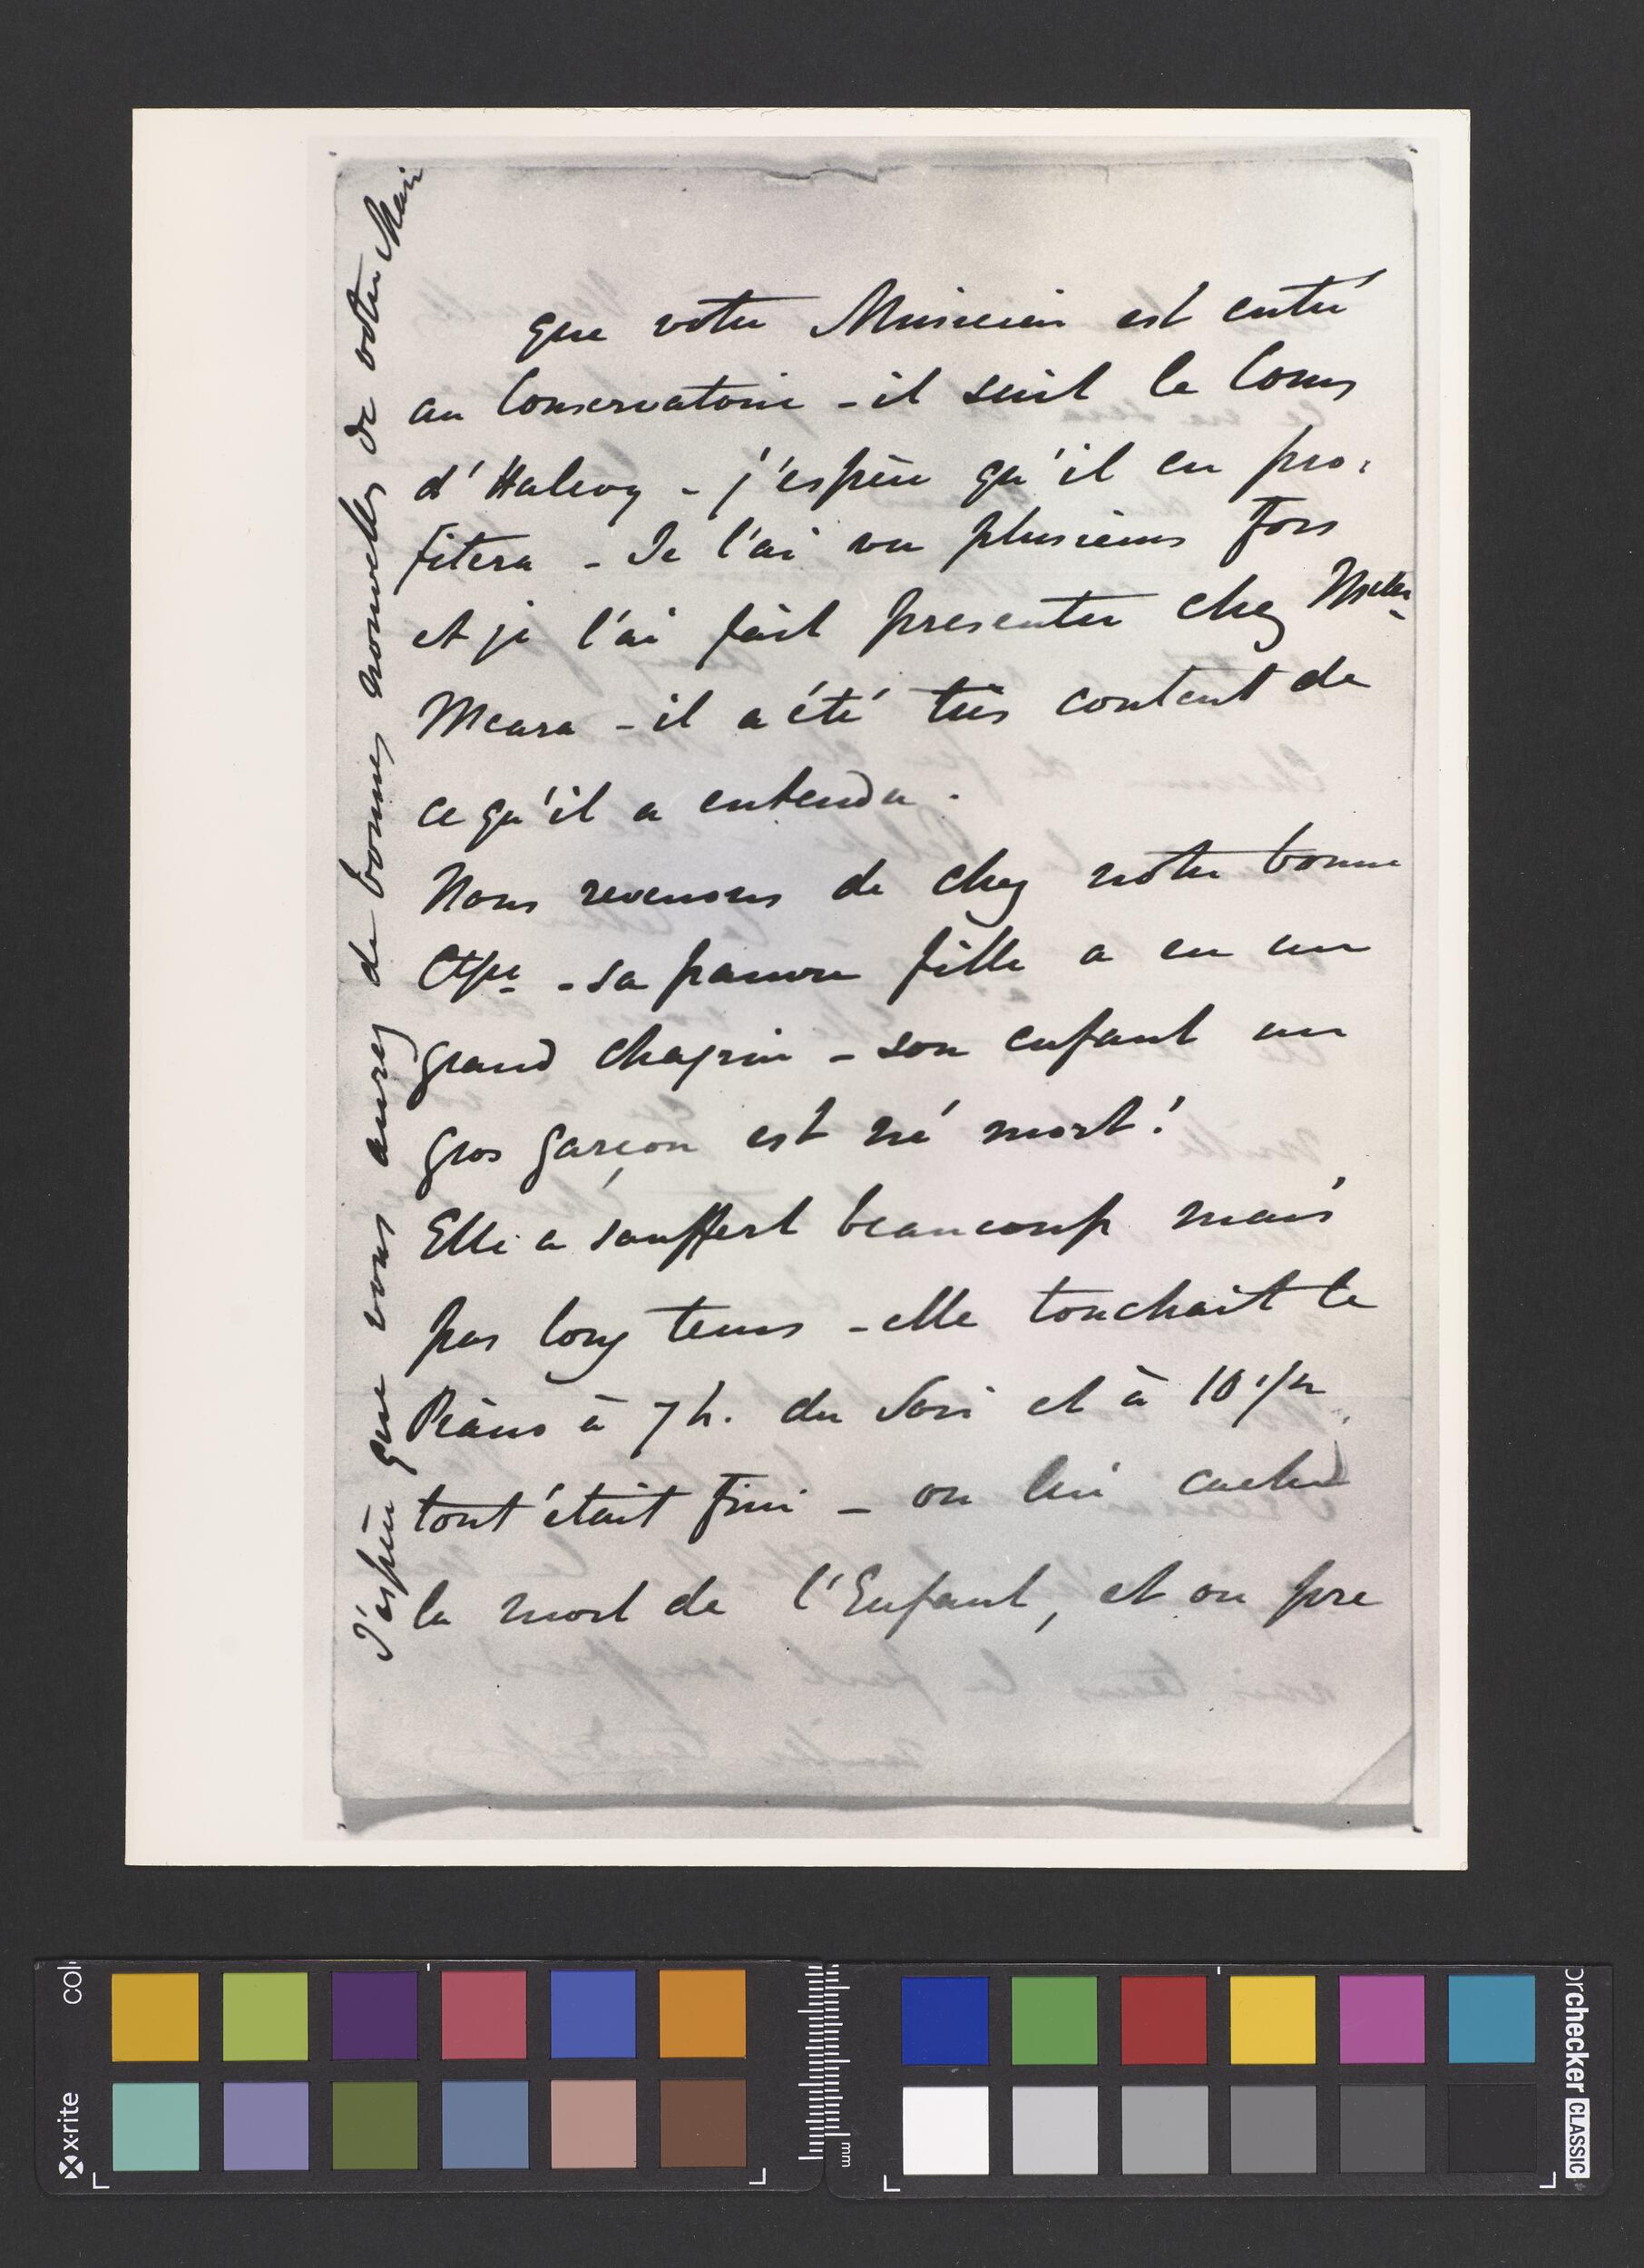 que votre Musicien est entré
au Conservatoire - il suit le Cours
d'Halevy - j'espère qu'il en pro:
fitera - Je l'ai vu plusieurs fois
et je l'ai fait presenter chez
Meara - il a été très content de
ce qu'il a entendu.
Nous revenons de chez notre bonne
Ctsse - sa pauvre fille a eu un
grand chagrin - son enfant un
gros garçon est né mort!
Elle a souffert beaucoup mais
pas long tems - elle touchait le
Piano à 7 h. du Soir et à 10 1/2
tout était fini - on lui cache
la mort de l'Enfant, et on pre
J'espère que vous aurez de bonnes nouvelles de votre Mari
x-rite
colorchecker CLASSIC
mm